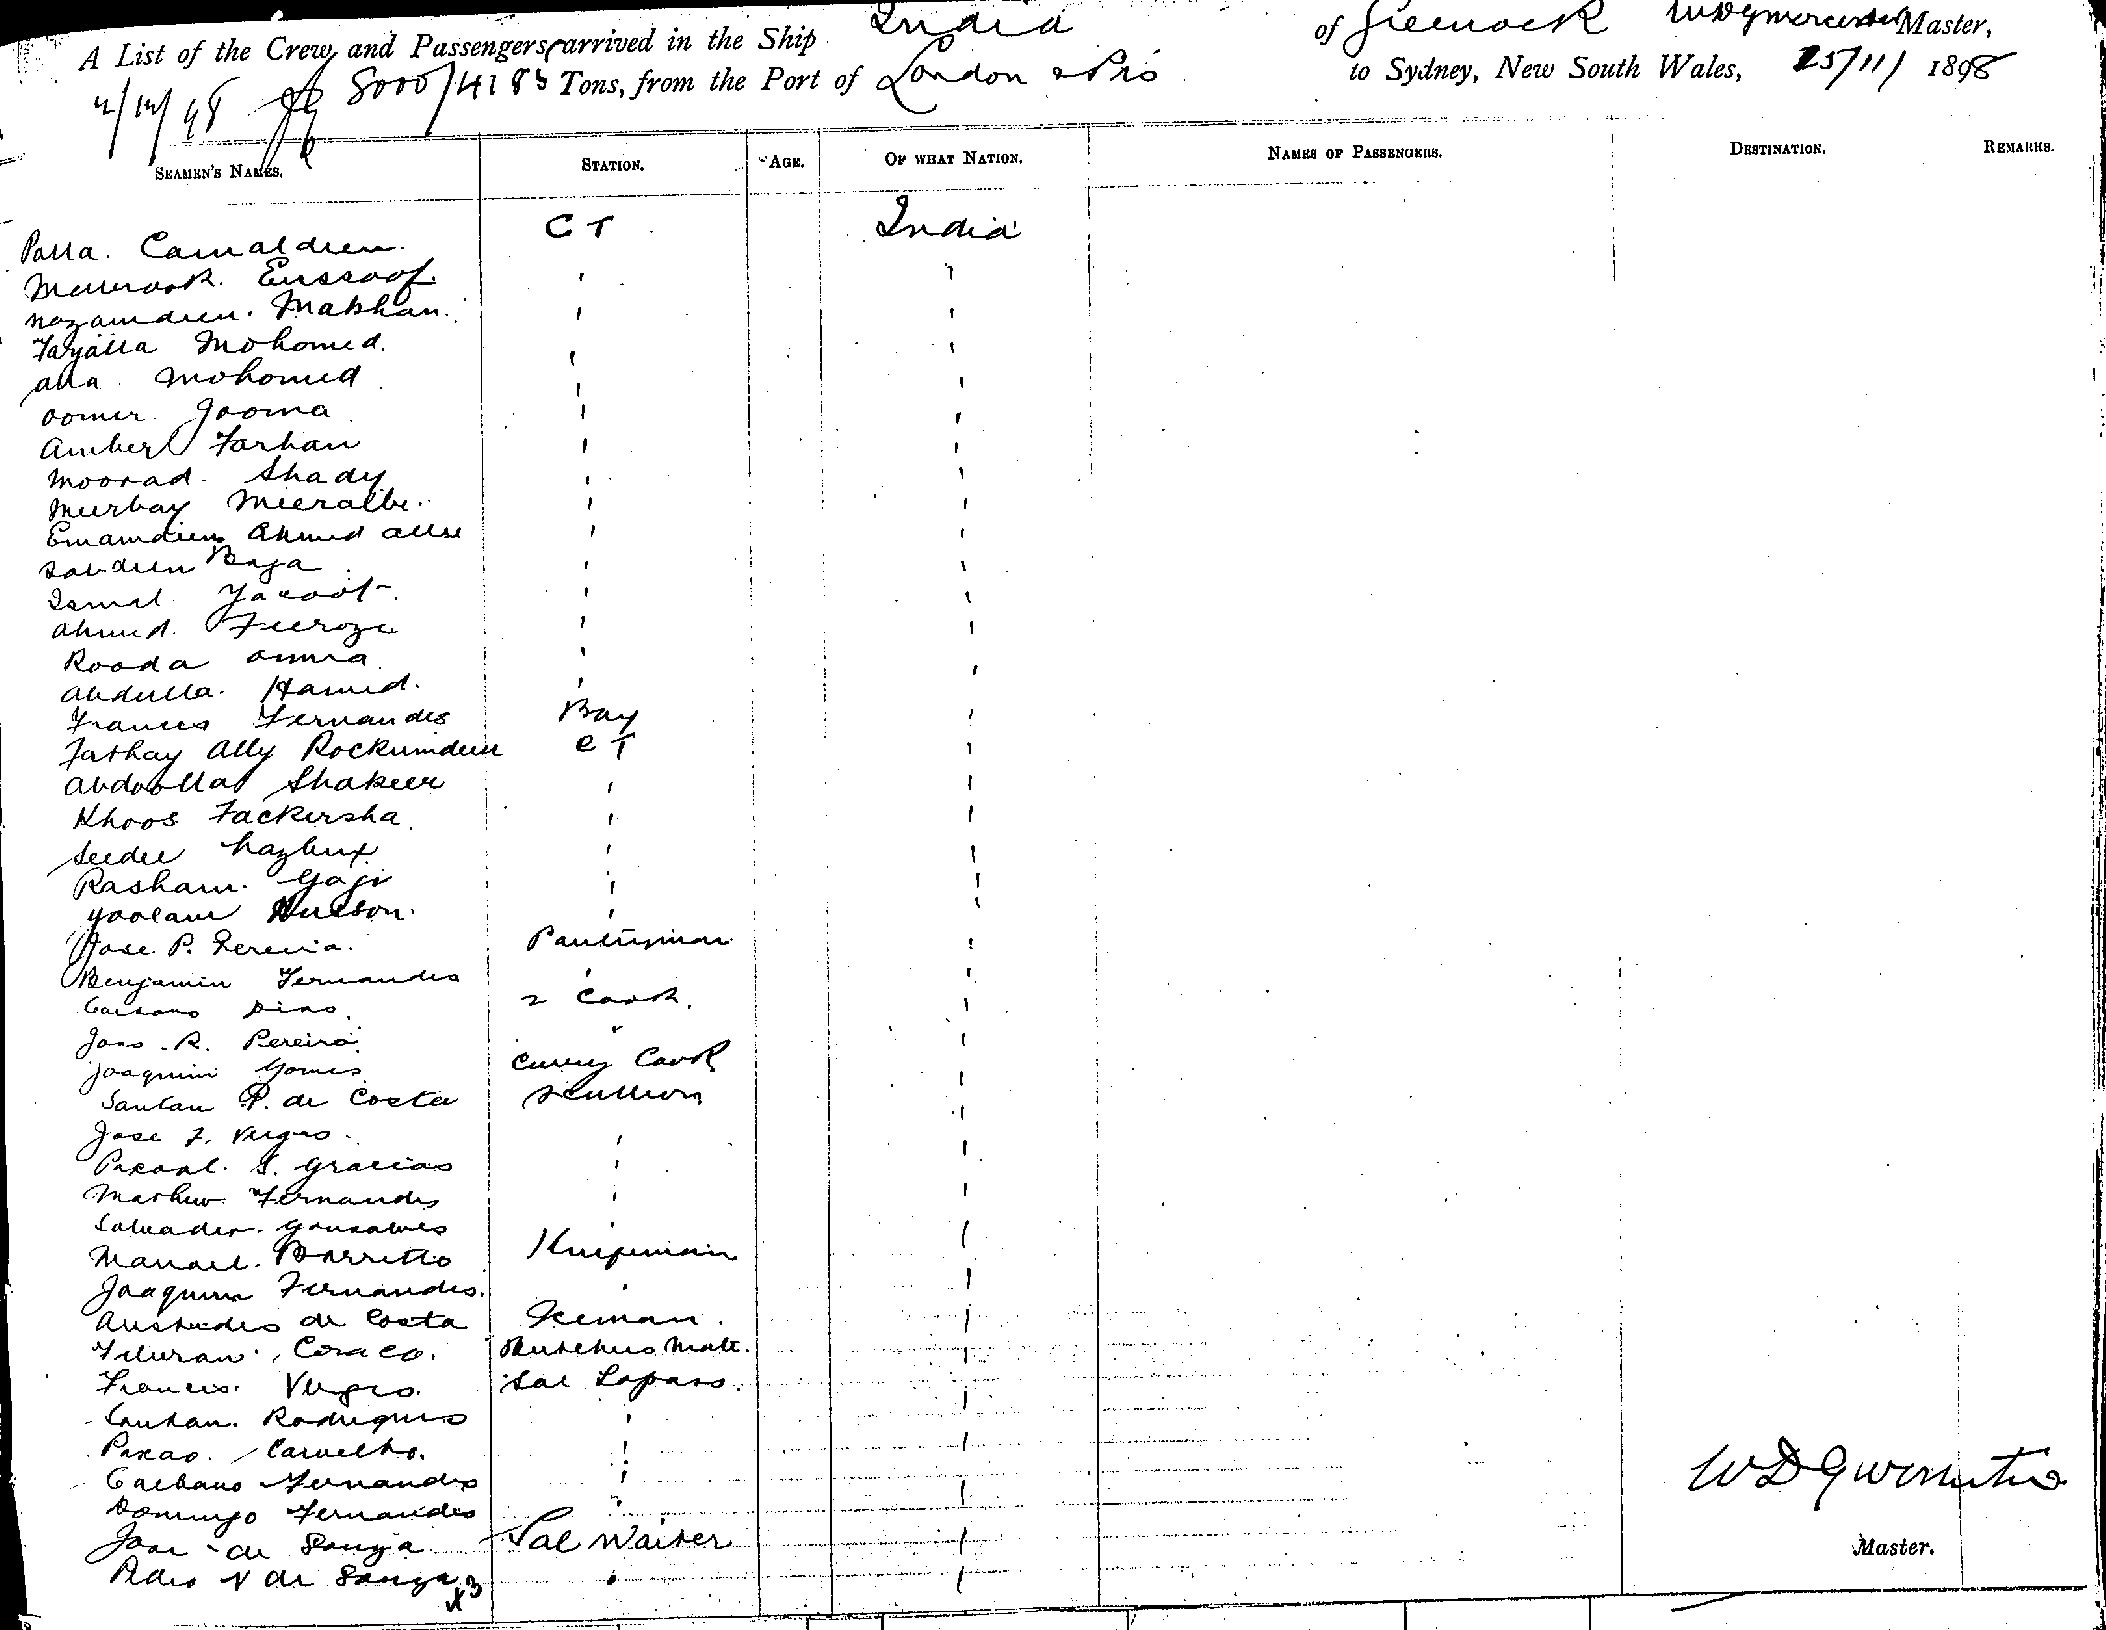 A List of the Crew and Passengers arrived in the Ship India of Greenock Master,
2/12/98 8000/4185 Tons, from the Port of London & Pts to Sydney, New South Wales, 25/11/ 1898
SEAMEN'S NAMES. STATION. AGE. OF WHAT NATION. NAMES OF PASSENGERS. DESTINATION. REMARKS.
Palla. Camaldeen. C T India
Eussoof. ' "
Nazamdeen. Makhan. ' '
Mohomed. ' '
Mohomed ' '
oomer Jooma ' '
Amber Farhan ' '
Moorad Shady ' '
Meerbay ' '
Emamdeen Ahmed Allee ' '
Raja ' '
Ismal Yacoot ' '
Ahmed Feeroze ' '
Rooda ' '
Abdulla. Hamed. ' '
Frances Fernandes Bay '
Fathay Ally Rockumdeen C T '
Abdoolla Shakeer ' '
Khoos Fackersha ' '
Seedee ' '
Rasham. Gaji ' '
Goolam Husson. ' '
Jose P. Pereira. Pantryman '
Benjamin Fernandes ' '
Caetano Dias. 2 Cook. '
Joao R. Pereira. " '
Joaquim Gomes Curry Cook '
Santan P. de Costa Scullion '
Jose F. ' '
S. Gracias ' '
Mathew Fernandes ' '
Salvador Gonsalves ' '
Manoel. Barretto '
Joaquim Fernandes. ' '
de Costa Iceman. '
Butchers Mate. '
Francis. Sal Topass. '
Santan. Rodrigues ' '
Carvelho. ' '
Caetano Fernandes ' '
Domingo Fernandes "
de Souza Sal Waiter '
Pedro de Souza ' '
x3
Master.